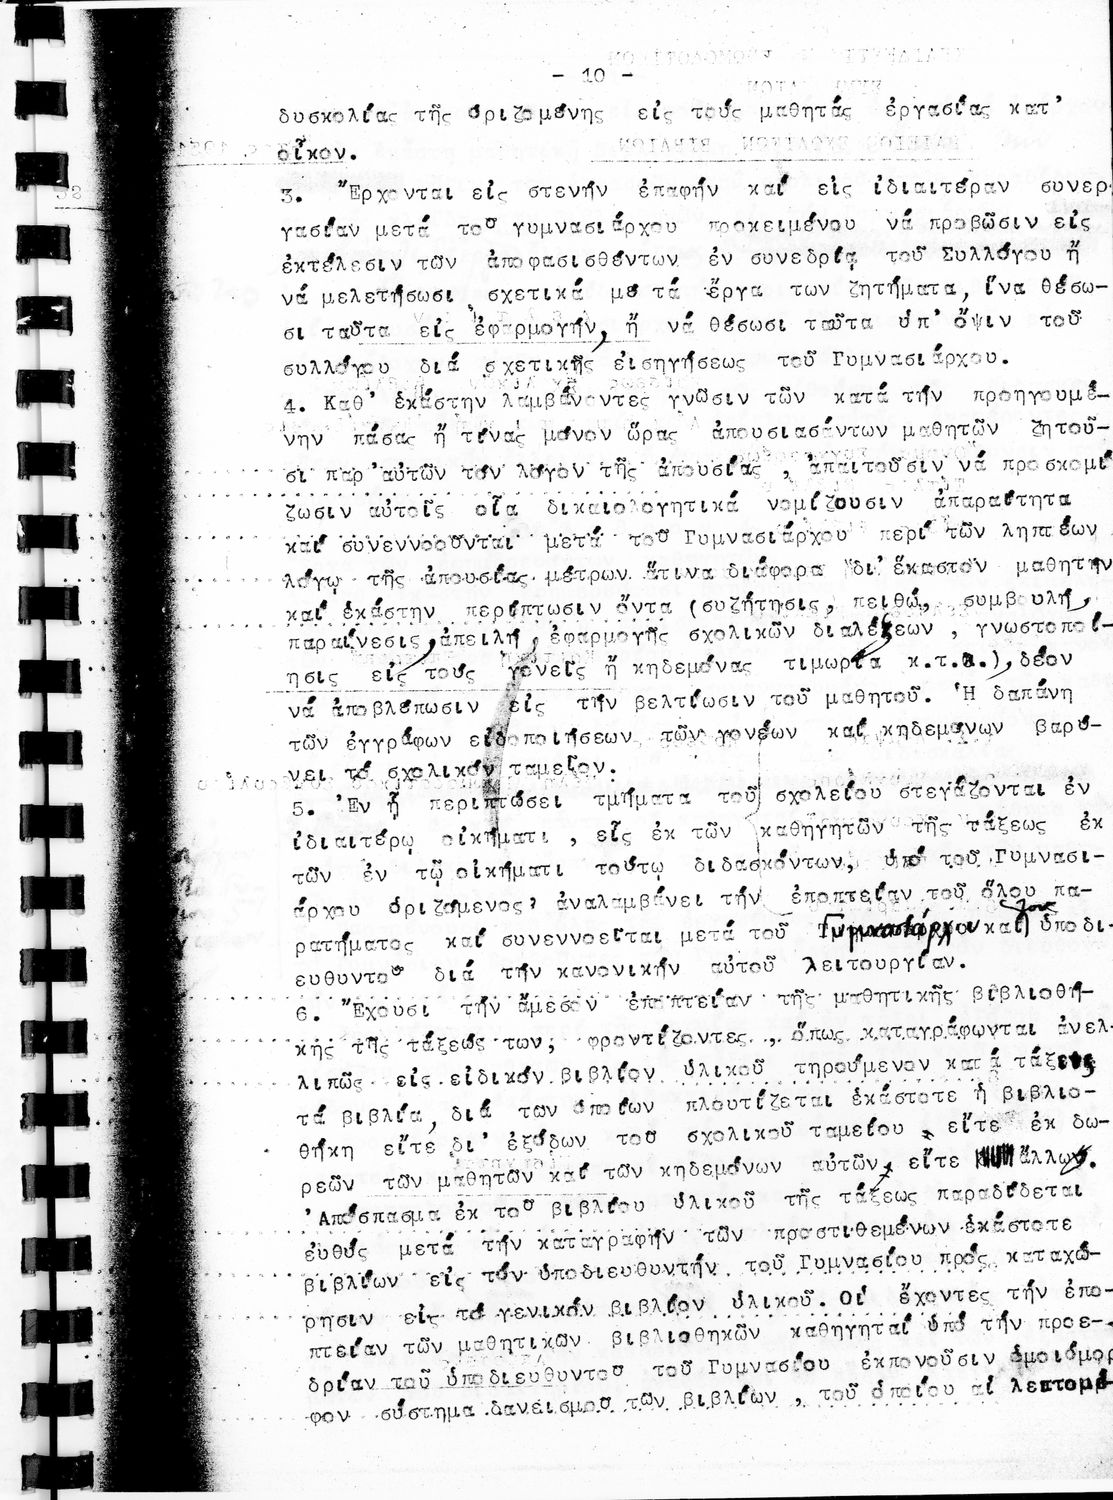 - 10 -
δυσκολίας τῆς ὁριζομένης εἰς τούς μαθητάς ἐργασίας κατ'
οἶκον.
3. Ἔρχονται εἰς στενήν ἐπαφήν καί εἰς ἰδιαιτέραν συνερ-
γασίαν μετά τοῦ γυμνασιάρχου προκειμένου νά προβῶσιν εἰς
ἐκτέλεσιν τῶν ἀποφασισθέντων ἐν συνεδρίᾳ τοῦ Συλλόγου ἤ
νά μελετήσωσι σχετικά μέ τά ἔργα των ζητήματα, ἵνα θέσω-
σι ταῦτα εἰς ἐφαρμογήν, ἤ νά θέσωσι ταῦτα ὑπ' ὄψιν τοῦ
συλλόγου διά σχετικῆς εἰσηγήσεως τοῦ Γυμνασιάρχου.
4. Καθ' ἑκάστην λαμβάνοντες γνῶσιν τῶν κατά τήν προηγουμέ-
νην πάσας ἤ τινας μόνον ὥρας ἀπουσιασάντων μαθητῶν ζητοῦ-
σι παρ'αὐτῶν τόν λόγον τῆς ἀπουσίας , ἀπαιτοῦσιν νά προσκομί
ζωσιν αὐτοῖς οἷα δικαιολογητικά νομίζουσιν ἀπαραίτητα
καί συνεννοοῦνται μετά τοῦ Γυμνασιάρχου περί τῶν ληπτέων
λόγῳ τῆς ἀπουσίας μέτρων ἅτινα διάφορα δι' ἕκαστον μαθητήν
καί ἑκάστην περίπτωσιν ὄντα (συζήτησις, πειθώ, συμβουλή,
παραίνεσις, ἀπειλή, ἐφαρμογῆς σχολικῶν διαλέξεων , γνωστοποί-
ησις εἰς τούς γονεῖς ἤ κηδεμόνας τιμωρία κ.τ.λ.), δέον
νά ἀποβλέπωσιν εἰς τήν βελτίωσιν τοῦ μαθητοῦ. Ἡ δαπάνη
τῶν ἐγγράφων εἰδοποιήσεων τῶν γονέων καί κηδεμόνων βαρύ-
νει τό σχολικόν ταμεῖον.
5. Ἐν ᾗ περιπτώσει τμήματα τοῦ σχολείου στεγάζονται ἐν
ἰδιαιτέρῳ οἰκήματι , εἷς ἐκ τῶν καθηγητῶν τῆς τάξεως ἐκ
τῶν ἐν τῷ οἰκήματι τούτῳ διδασκόντων, ὑπό τοῦ Γυμνασι-
άρχου ὁριζόμενος, ἀναλαμβάνει τήν ἐποπτείαν τοῦ ὅλου πα-
ραρτήματος καί συνεννοεῖται μετά τοῦ Γυμνασιάρχου καί τοῦ ὑποδι-
ευθυντοῦ διά τήν κανονικήν αὐτοῦ λειτουργίαν.
6. Ἔχουσι τήν ἄμεσον ἐποπτείαν τῆς μαθητικῆς βιβλιοθή-
κης τῆς τάξεώς των, φροντίζοντες , ὅπως καταγράφωνται ἀνελ-
λιπῶς εἰς εἰδικόν βιβλίον ὑλικοῦ τηρούμενον κατά τάξεις
τά βιβλία, διά των ὁποίων πλουτίζεται ἑκάστοτε ἡ βιβλιο-
θήκη εἴτε δι' ἐξόδων τοῦ σχολικοῦ ταμείου , εἴτε ἐκ δω-
ρεῶν τῶν μαθητῶν καί τῶν κηδεμόνων αὐτῶν, εἴτε ἄλλων.
Ἀπόσπασμα ἐκ τοῦ βιβλίου ὑλικοῦ τῆς τάξεως παραδίδεται
εὐθύς μετά τήν καταγραφήν τῶν προστιθεμένων ἑκάστοτε
βιβλίων εἰς τόν ὑποδιευθυντήν τοῦ Γυμνασίου πρός καταχώ-
ρησιν εἰς τό γενικόν βιβλίον ὑλικοῦ. Οἱ ἔχοντες τήν ἐπο-
πτείαν τῶν μαθητικῶν βιβλιοθηκῶν καθηγηταί ὑπό τήν προε-
δρίαν τοῦ ὑποδιευθυντοῦ τοῦ Γυμνασίου ἐκπονοῦσιν ὁμοιόμορ
φον σύστημα δανεισμοῦ τῶν βιβλίων , τοῦ ὁποίου αἱ λεπτομέ-